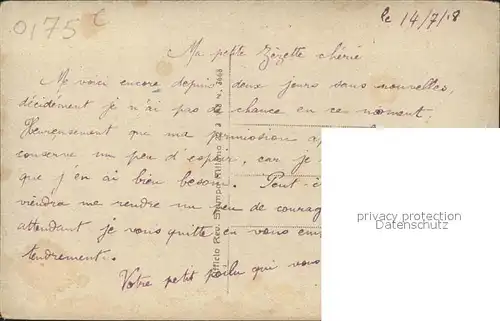 0175 c
le 14/7/18
Ma petite Zézette chérie
Me voici encore depuis deux jours sans nouvelles,
décidément je n'ai pas de chance en ce moment.
Heureusement que ma permission
conserve un peu d'espoir, car je
que j'en ai bien besoin. Peut-
viendra me rendre un peu de courag
attendant je vous quitte en vous em
tendrement.
Votre petit poilu qui vous
privacy protection
www.ansichtskarten-center.de
Ufficio Rev. Stampa, Milano